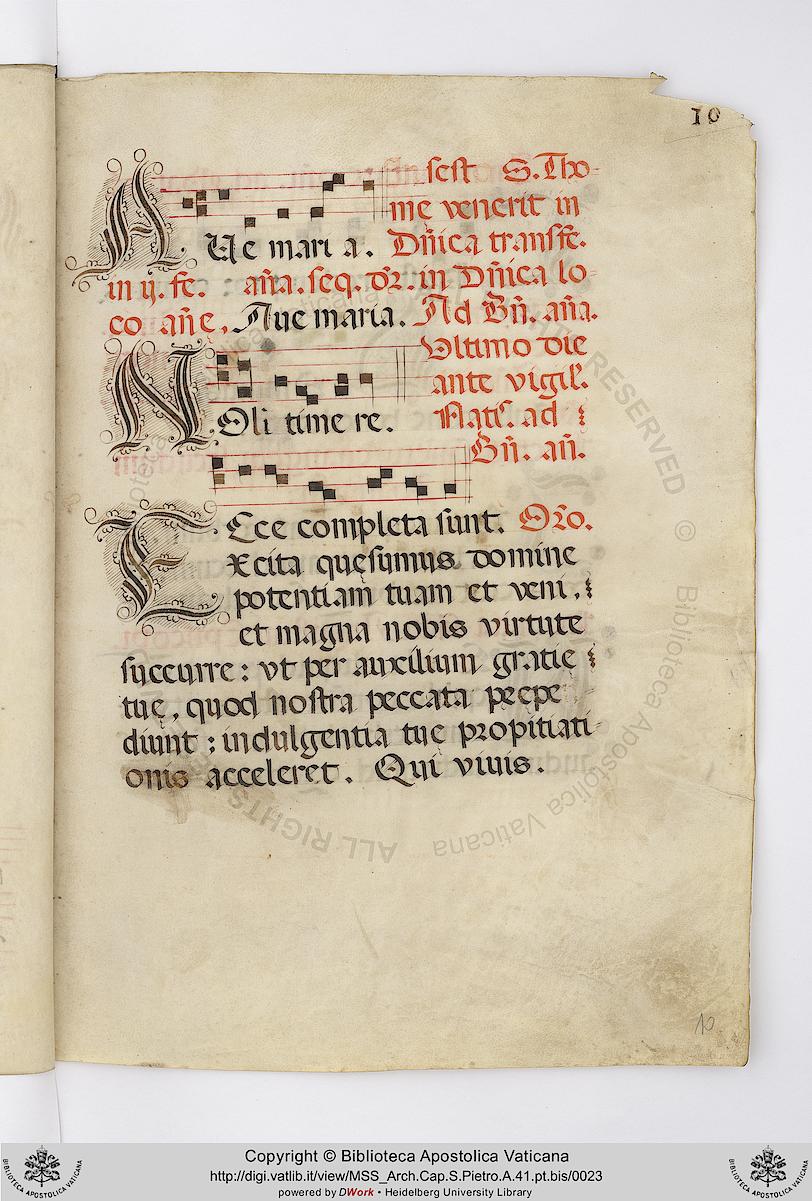 10
fest S. Tho-
mę venerit in
AUe mari a. Dñica transfe.
in ij. fe. : aña. seq. dr̃. in Dñica lo-
co añę. Aue maria. Ad Bñ. aña.
Vltimo die
ante vigil.
NOli time re. Nat. ad
Bñ. añ.
Ecce completa sunt. Oro.
Excita quęsumus domine
potentiam tuam et veni,
et magna nobis virtute
succurre: vt per auxilium gratię
tuę, quod nostra peccata prępe
diunt; indulgentia tuę propitiati-
onis acceleret. Qui viuis.
10
ALL RIGHTS RESERVED © Biblioteca Apostolica Vaticana
Copyright © Biblioteca Apostolica Vaticana
http://digi.vatlib.it/view/MSS_Arch.Cap.S.Pietro.A.41.pt.bis/0023
powered by DWork • Heidelberg University Library
BIBLIOTECA APOSTOLICA VATICANA
BIBLIOTECA APOSTOLICA VATICANA